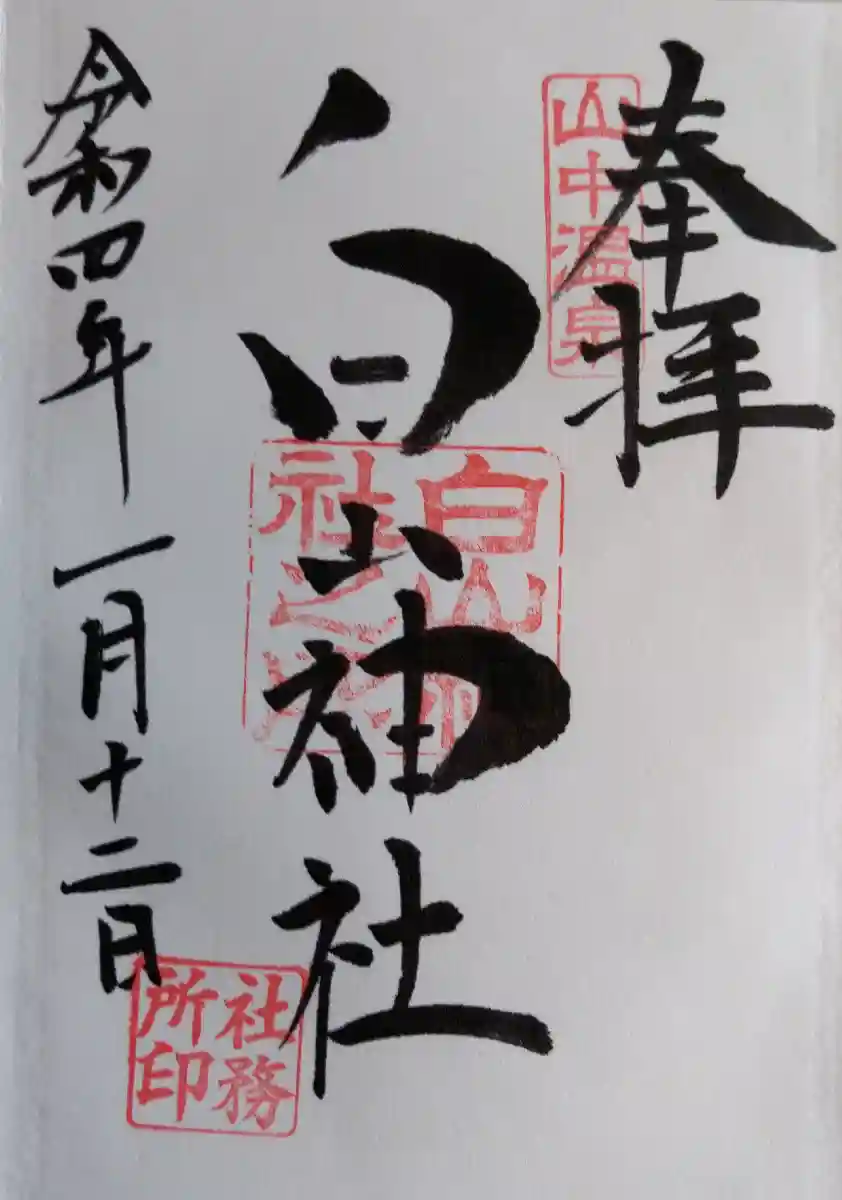 奉拝
山中温泉
白山神社
白山神
社之印
令和四年一月十二日
社務
所印